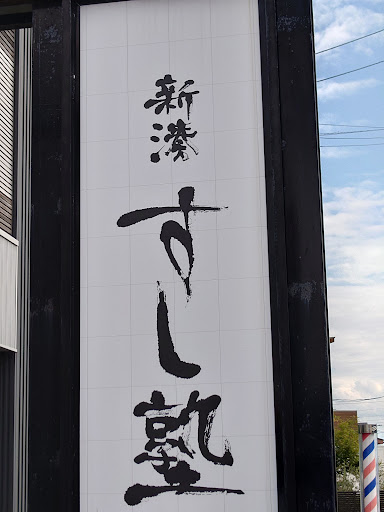 新湊
すし塾